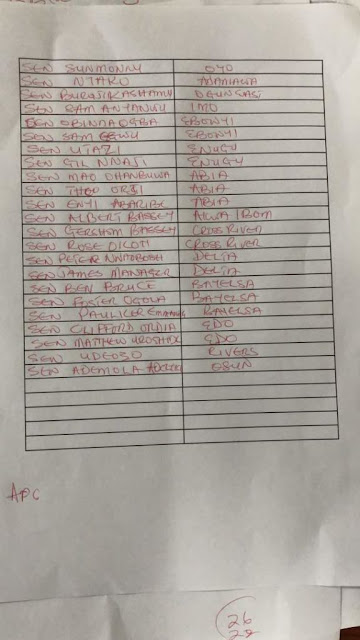 SEN SUNMONNU OYO
SEN NTAKU ANAMBRA
SEN BURUJI KASHAMU OGUN EAST
SEN SAM ANYANWU IMO
SEN OBINNA OGBA EBONYI
SEN SAM EGWU EBONYI
SEN UTAZI ENUGU
SEN GIL NNAJI ENUGU
SEN MAO OHANBUWA ABIA
SEN THEO ORJI ABIA
SEN ENYI ABARIBE ABIA
SEN ALBERT BASSEY AKWA IBOM
SEN GERSHOM BASSEY CROSS RIVER
SEN ROSE OKOTI CROSS RIVER
SEN PETER NWAOBOSHI DELTA
SEN JAMES MANAGER DELTA
SEN BEN BRUCE BAYELSA
SEN FOSTER OGOLA BAYELSA
SEN PAULKER BAYELSA
SEN CLIFFORD ORDIA EDO
SEN MATTHEW UROSHIDE EDO
SEN UDEOSO RIVERS
SEN ADEMOLA OSUN
APC
26
28